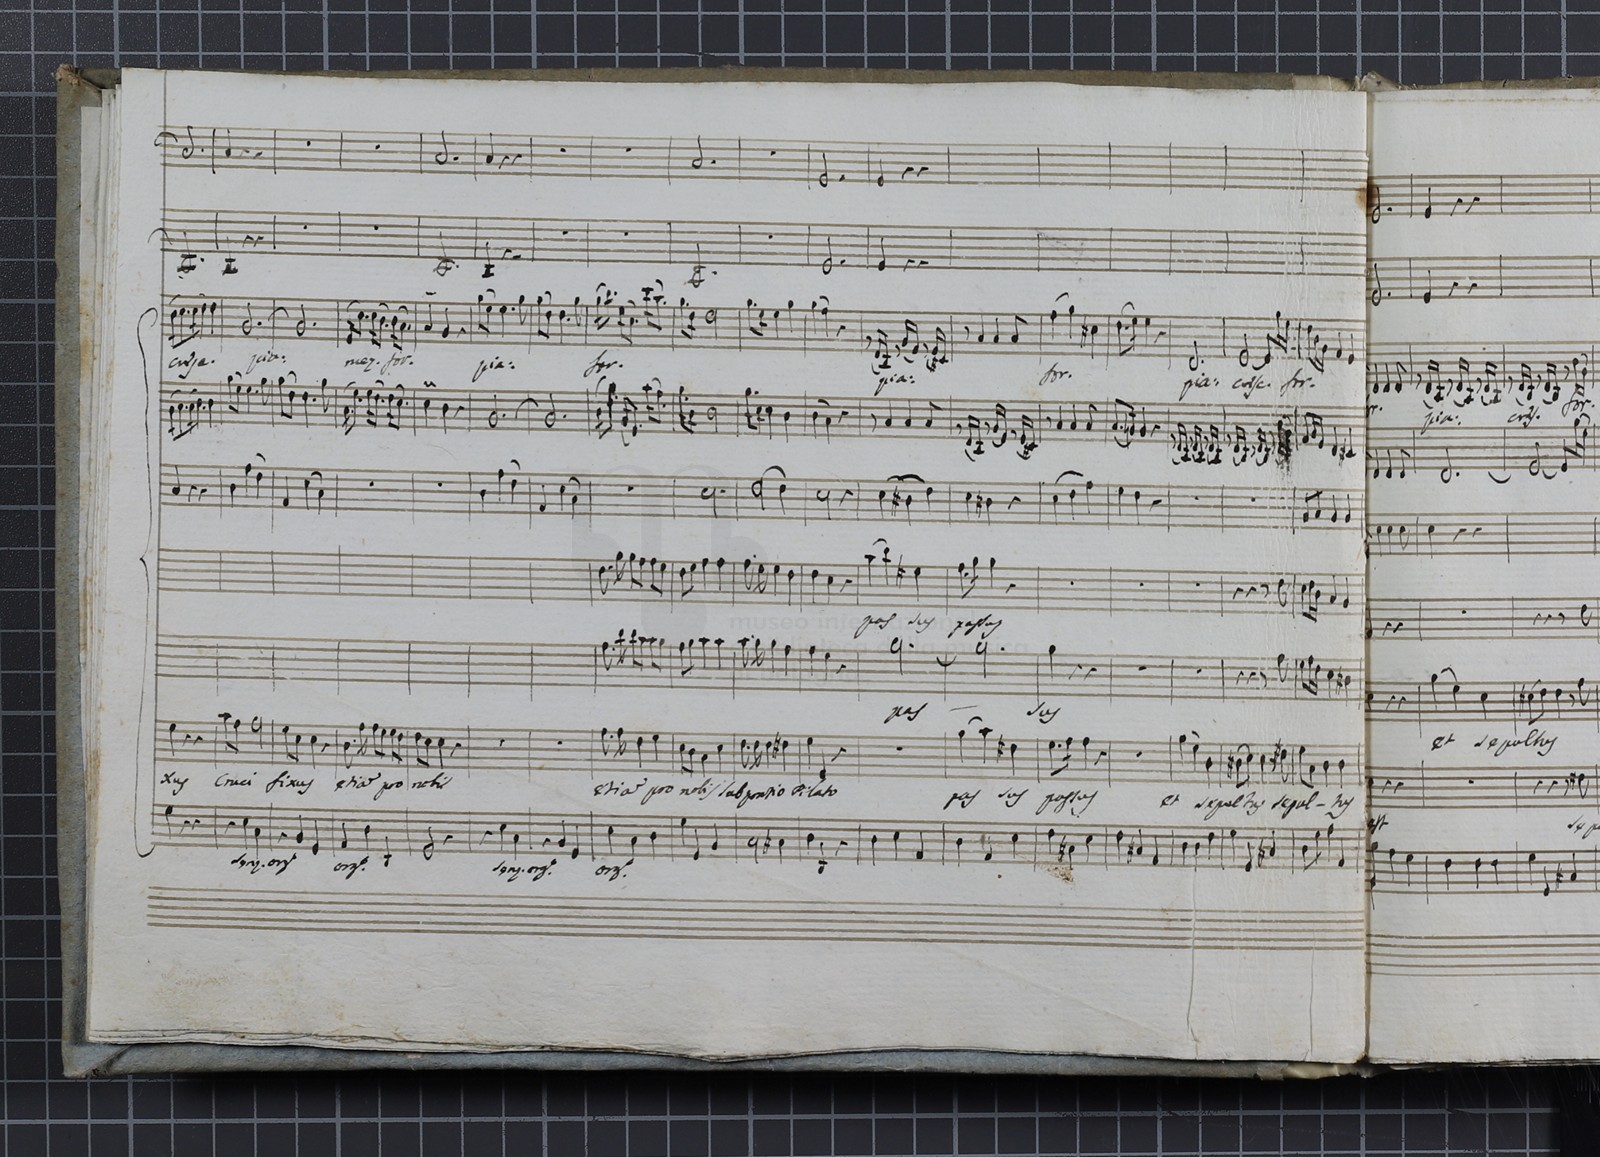 cresc. pia: mez. for. pia: for. pia: for. pia: cresc. for.
pia: cresc. for.
pas sus passus
pas — sus
xus Cruci fixus etiã pro nobis etiã pro nobis sub pontio Pilato pas sus passus et sepultus sepul - tus
et sepultus
est
senz. org? org? senz. org? org?
museo internazionale